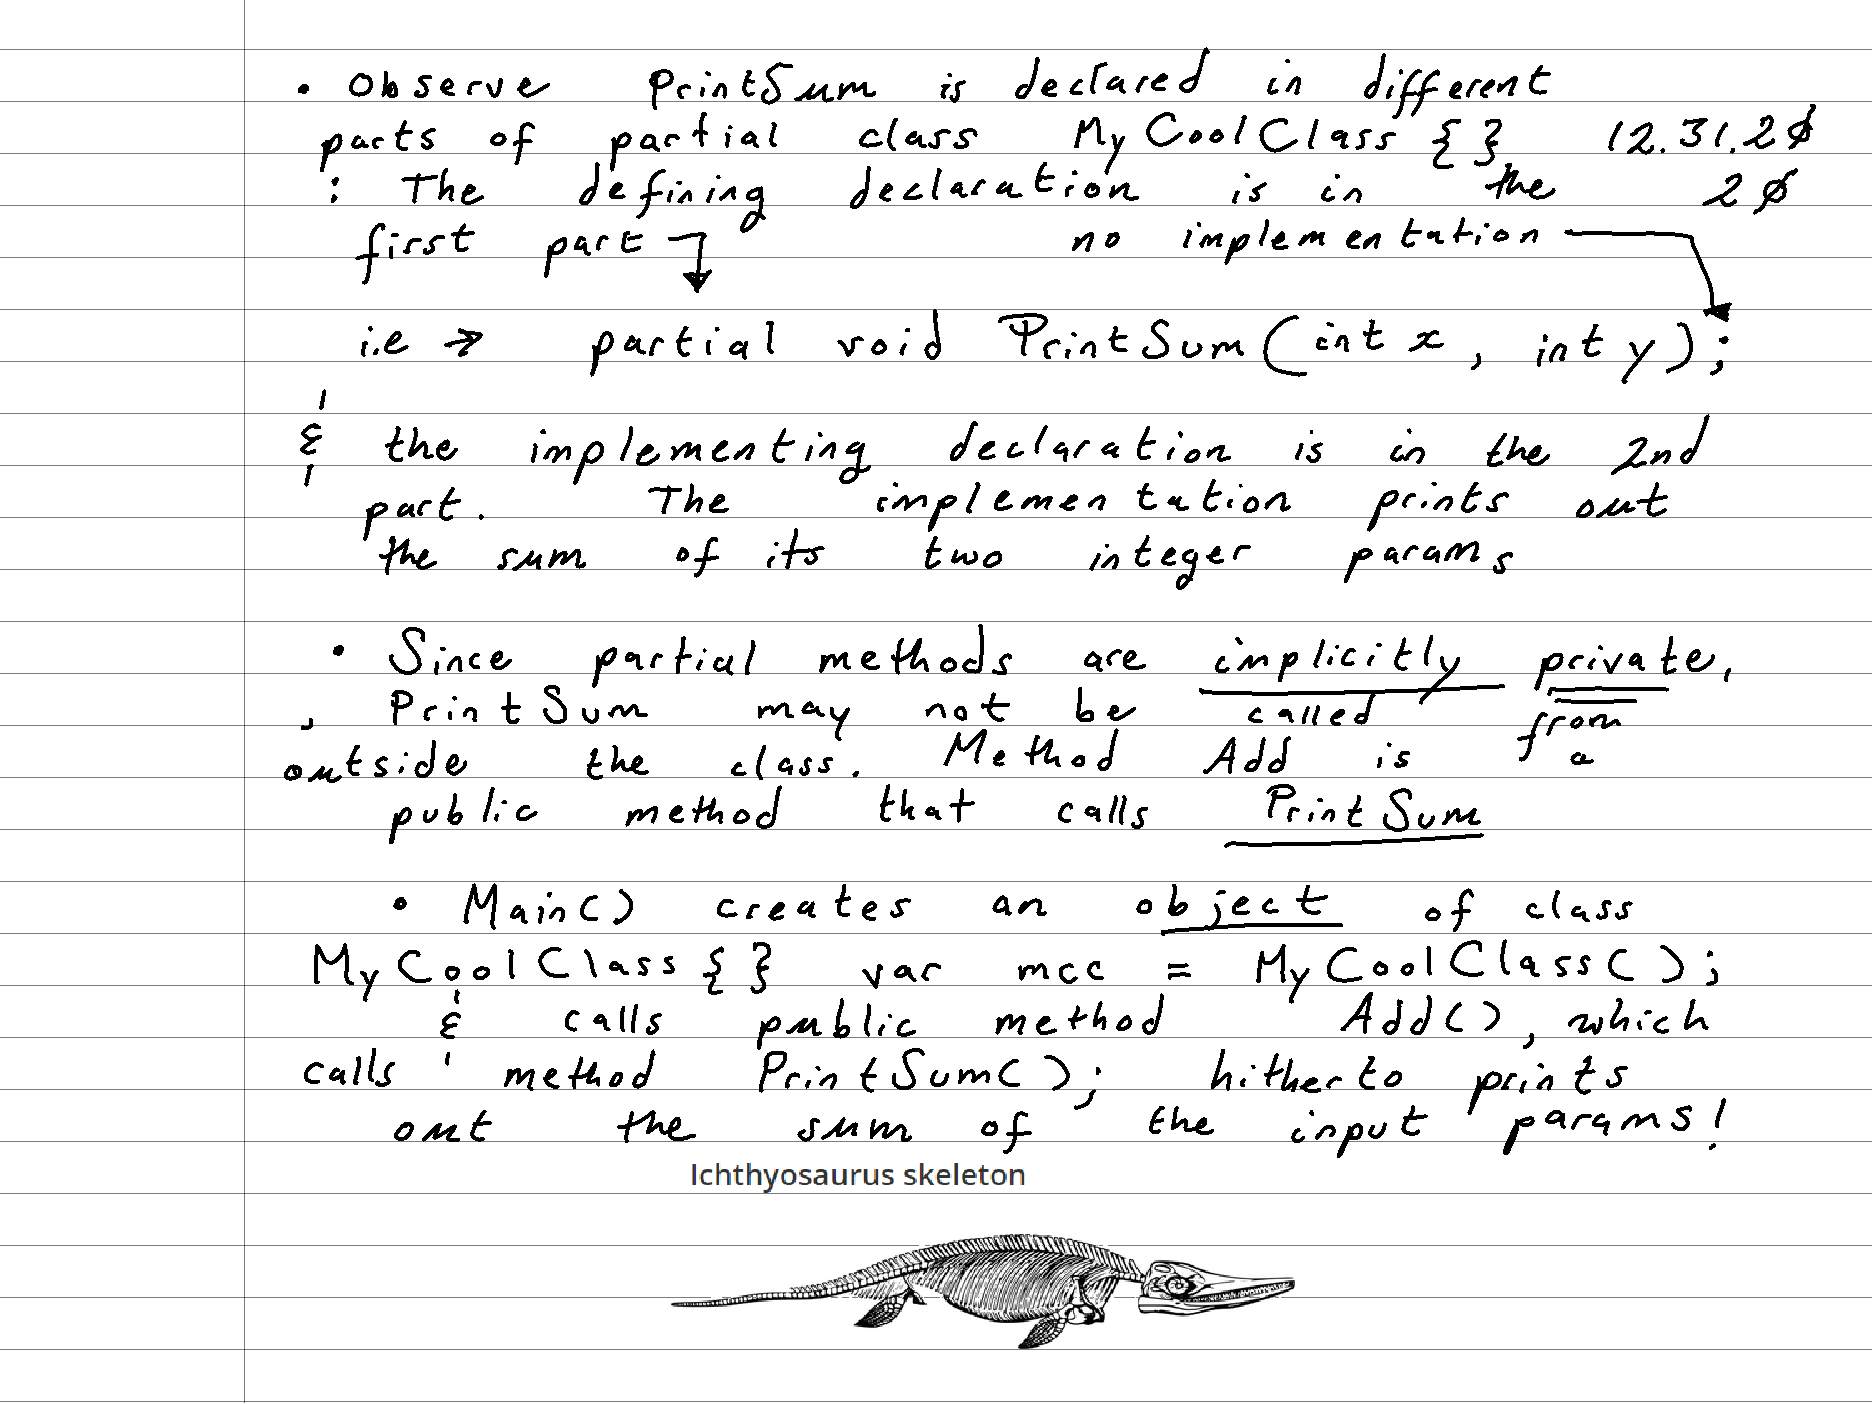 • Observe PrintSum is declared in different
parts of partial class MyCoolClass { } 12.31.2∅
: The defining declaration is in the 2∅
first part no implementation
i.e → partial void PrintSum(int x, int y);
& the implementing declaration is in the 2nd
part. The implementation prints out
the sum of its two integer params
• Since partial methods are implicitly private,
, PrintSum may not be called from
outside the class. Method Add is a
public method that calls PrintSum
• Main() creates an object of class
MyCoolClass { } var mcc = MyCoolClass();
& calls public method Add(), which
calls method PrintSum(); hitherto prints
out the sum of the input params!
Ichthyosaurus skeleton